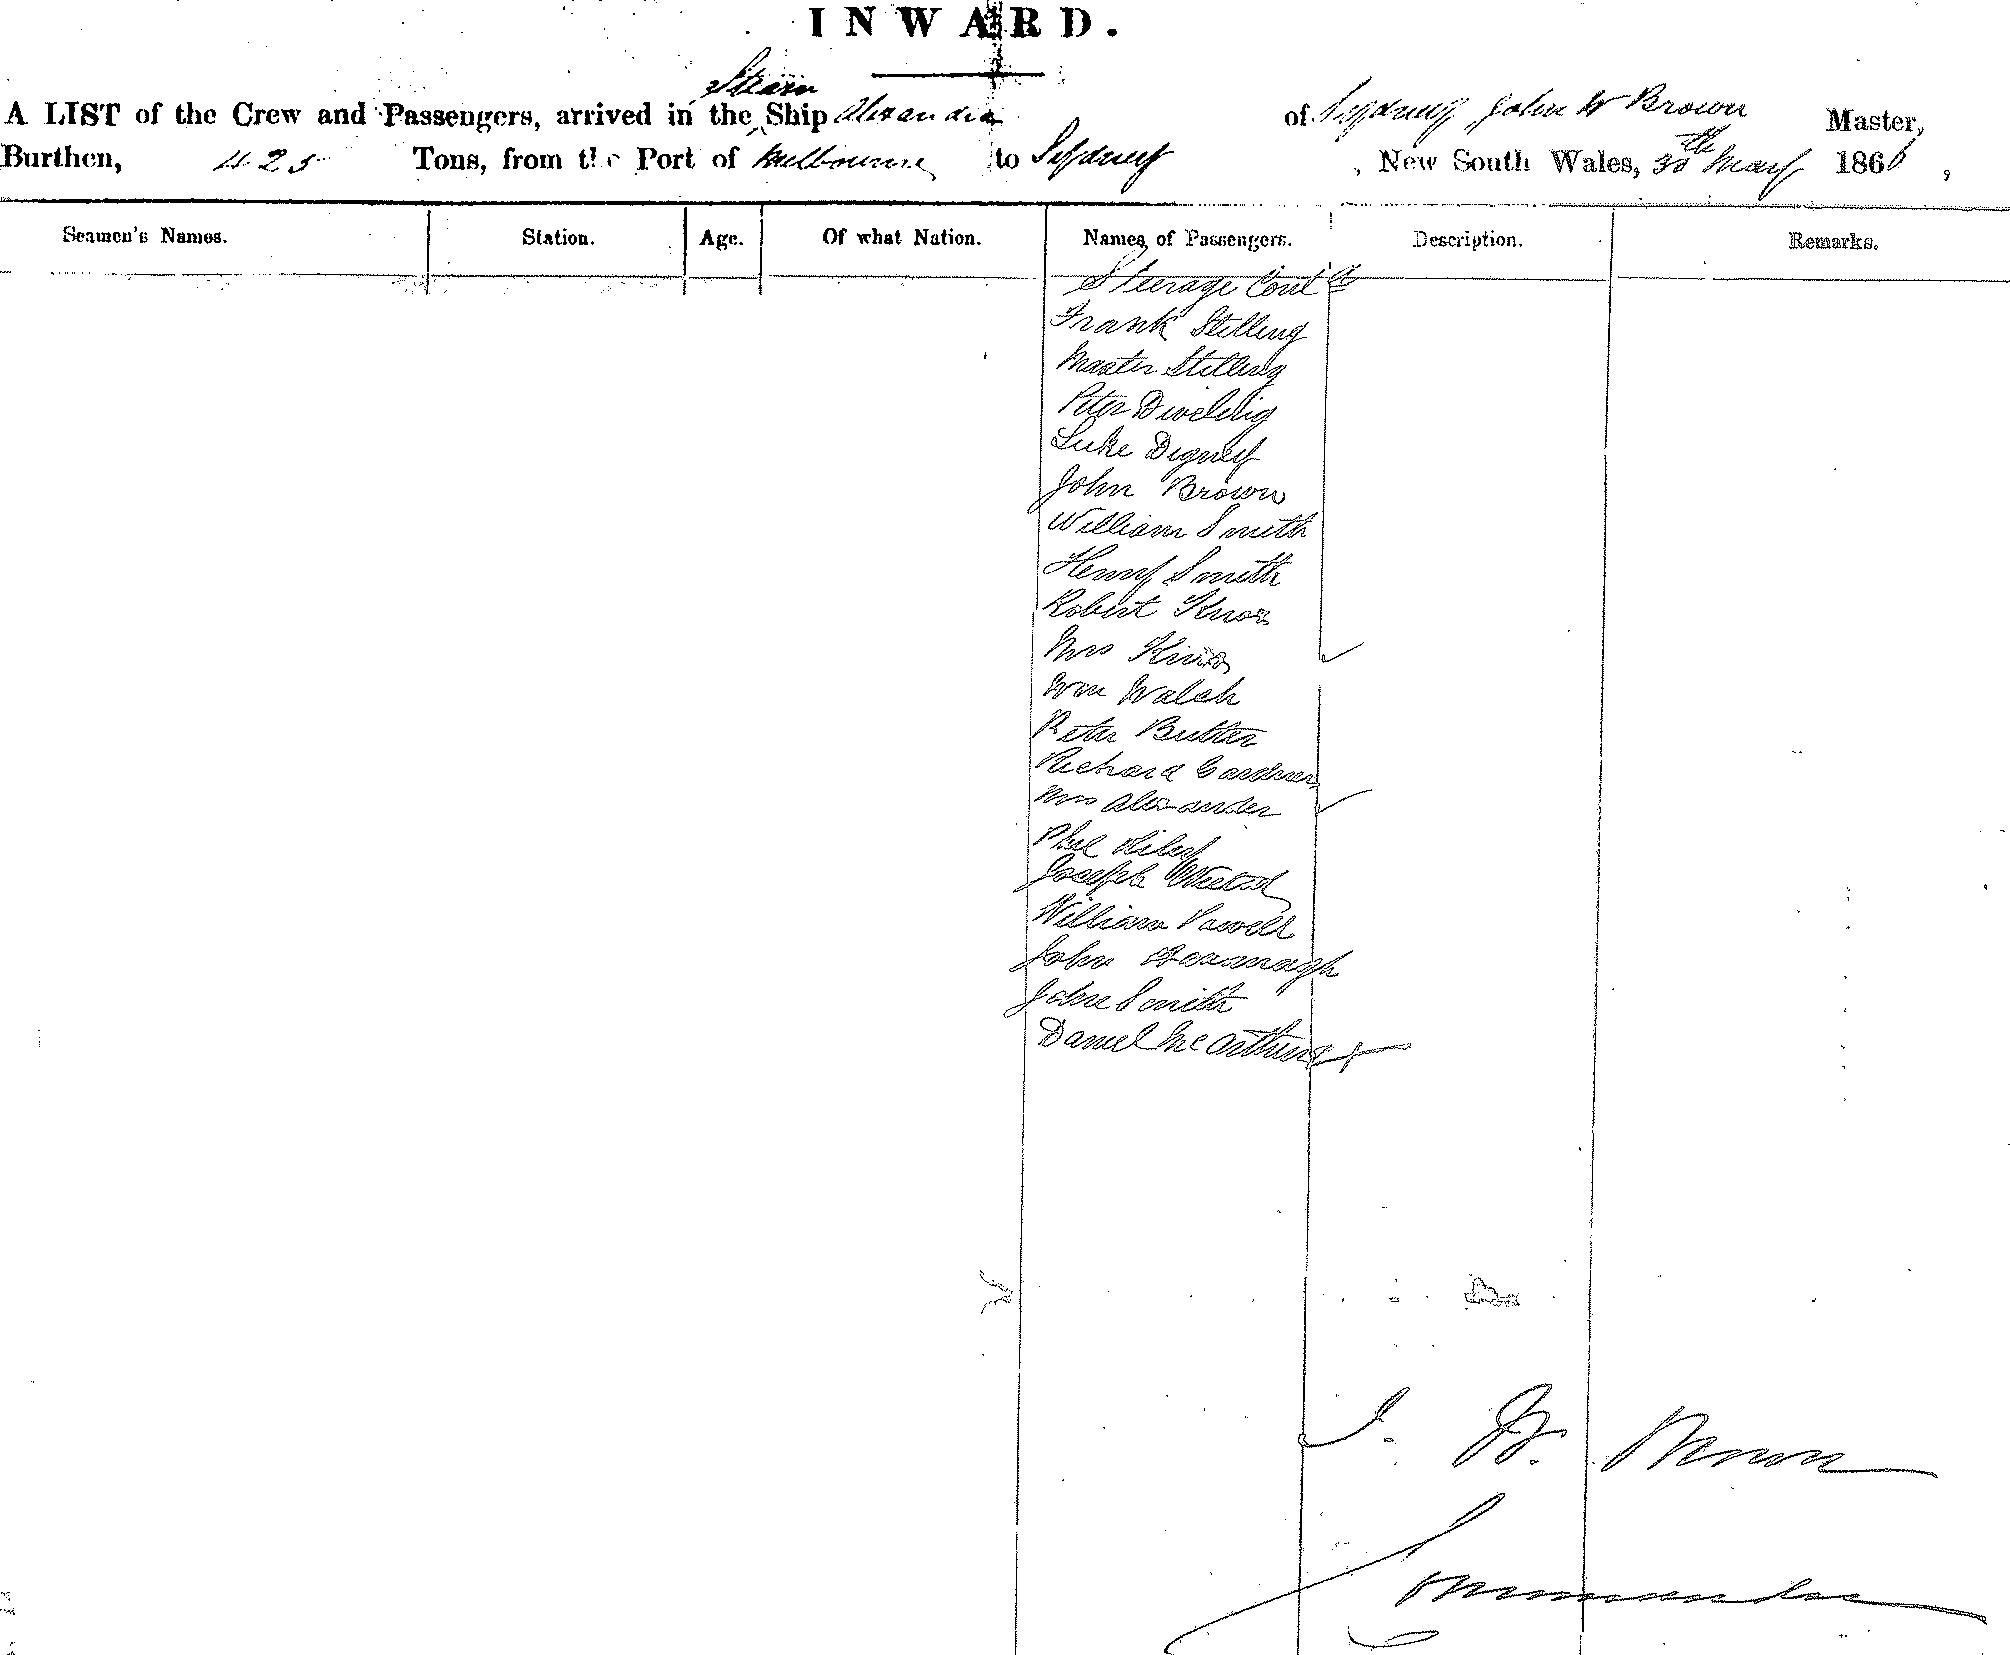 INWARD.
Steam
A LIST of the Crew and Passengers, arrived in the Ship Alexandra of Sydney, John W Brown Master,
Burthen, 425 Tons, from the Port of Melbourne to Sydney, New South Wales, 30th May 1866,
Seamen's Names. Station. Age. Of what Nation. Names of Passengers. Description. Remarks.
Steerage Contd
Frank Stelling
Master Stelling
Peter
Luke Digney
John Brown
William Smith
Henry Smith
Robert Knox
Mrs Knox
Wm Walsh
Peter Butler
Richard Gardner
Mrs Alexander
Phil Riley
Joseph
William Powell
John Kavanagh
John Smith
Daniel McArthur
J. W. Brown
Commander